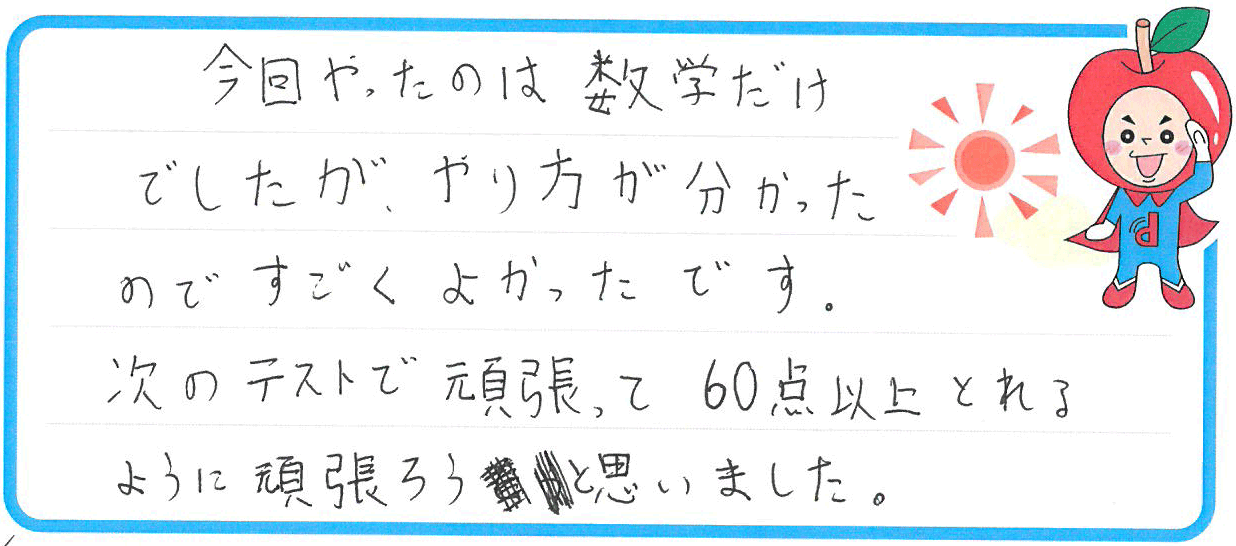 今回やったのは数学だけ
でしたが、やり方が分かった
のですごくよかったです。
次のテストで頑張って60点以上とれる
ように頑張ろうと思いました。